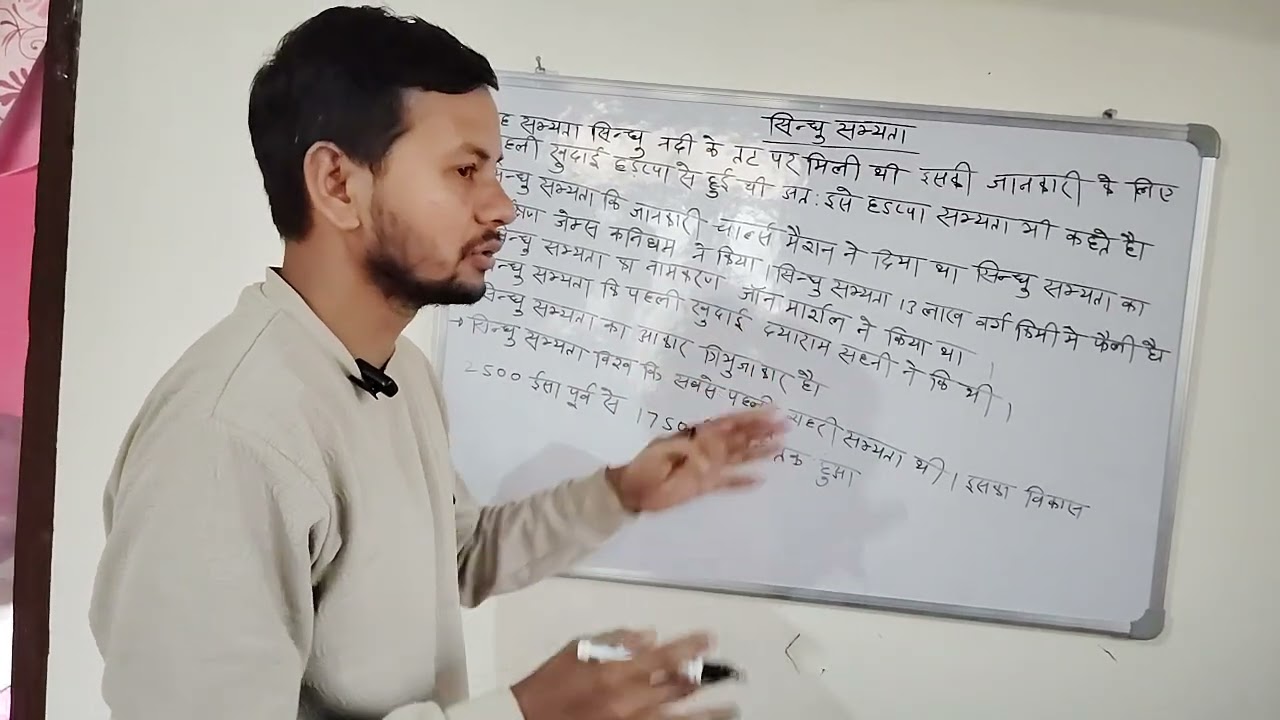 सिन्धु सभ्यता
सभ्यता सिन्धु नदी के तट पर मिली थी इसकी जानकारी के लिए
खुदाई हड़प्पा से हुई थी अतः इसे हड़प्पा सभ्यता भी कहते है।
सभ्यता कि जानकारी चार्ल्स मैशन ने दिया था सिन्धु सभ्यता का
जेम्स कनिधम ने किया। सिन्धु सभ्यता 13 लाख वर्ग किमी मे फैली है
सिन्धु सभ्यता का नामकरण जॉन मार्शल ने किया था ।
सिन्धु सभ्यता कि पहली खुदाई दयाराम सहनी ने कि थी।
सिन्धु सभ्यता का आकार त्रिभुजाकार है।
→ सिन्धु सभ्यता विश्व कि सबसे पहली शहरी सभ्यता थी। इसका विकास
2500 ईसा पूर्व से 1750 तक हुआ